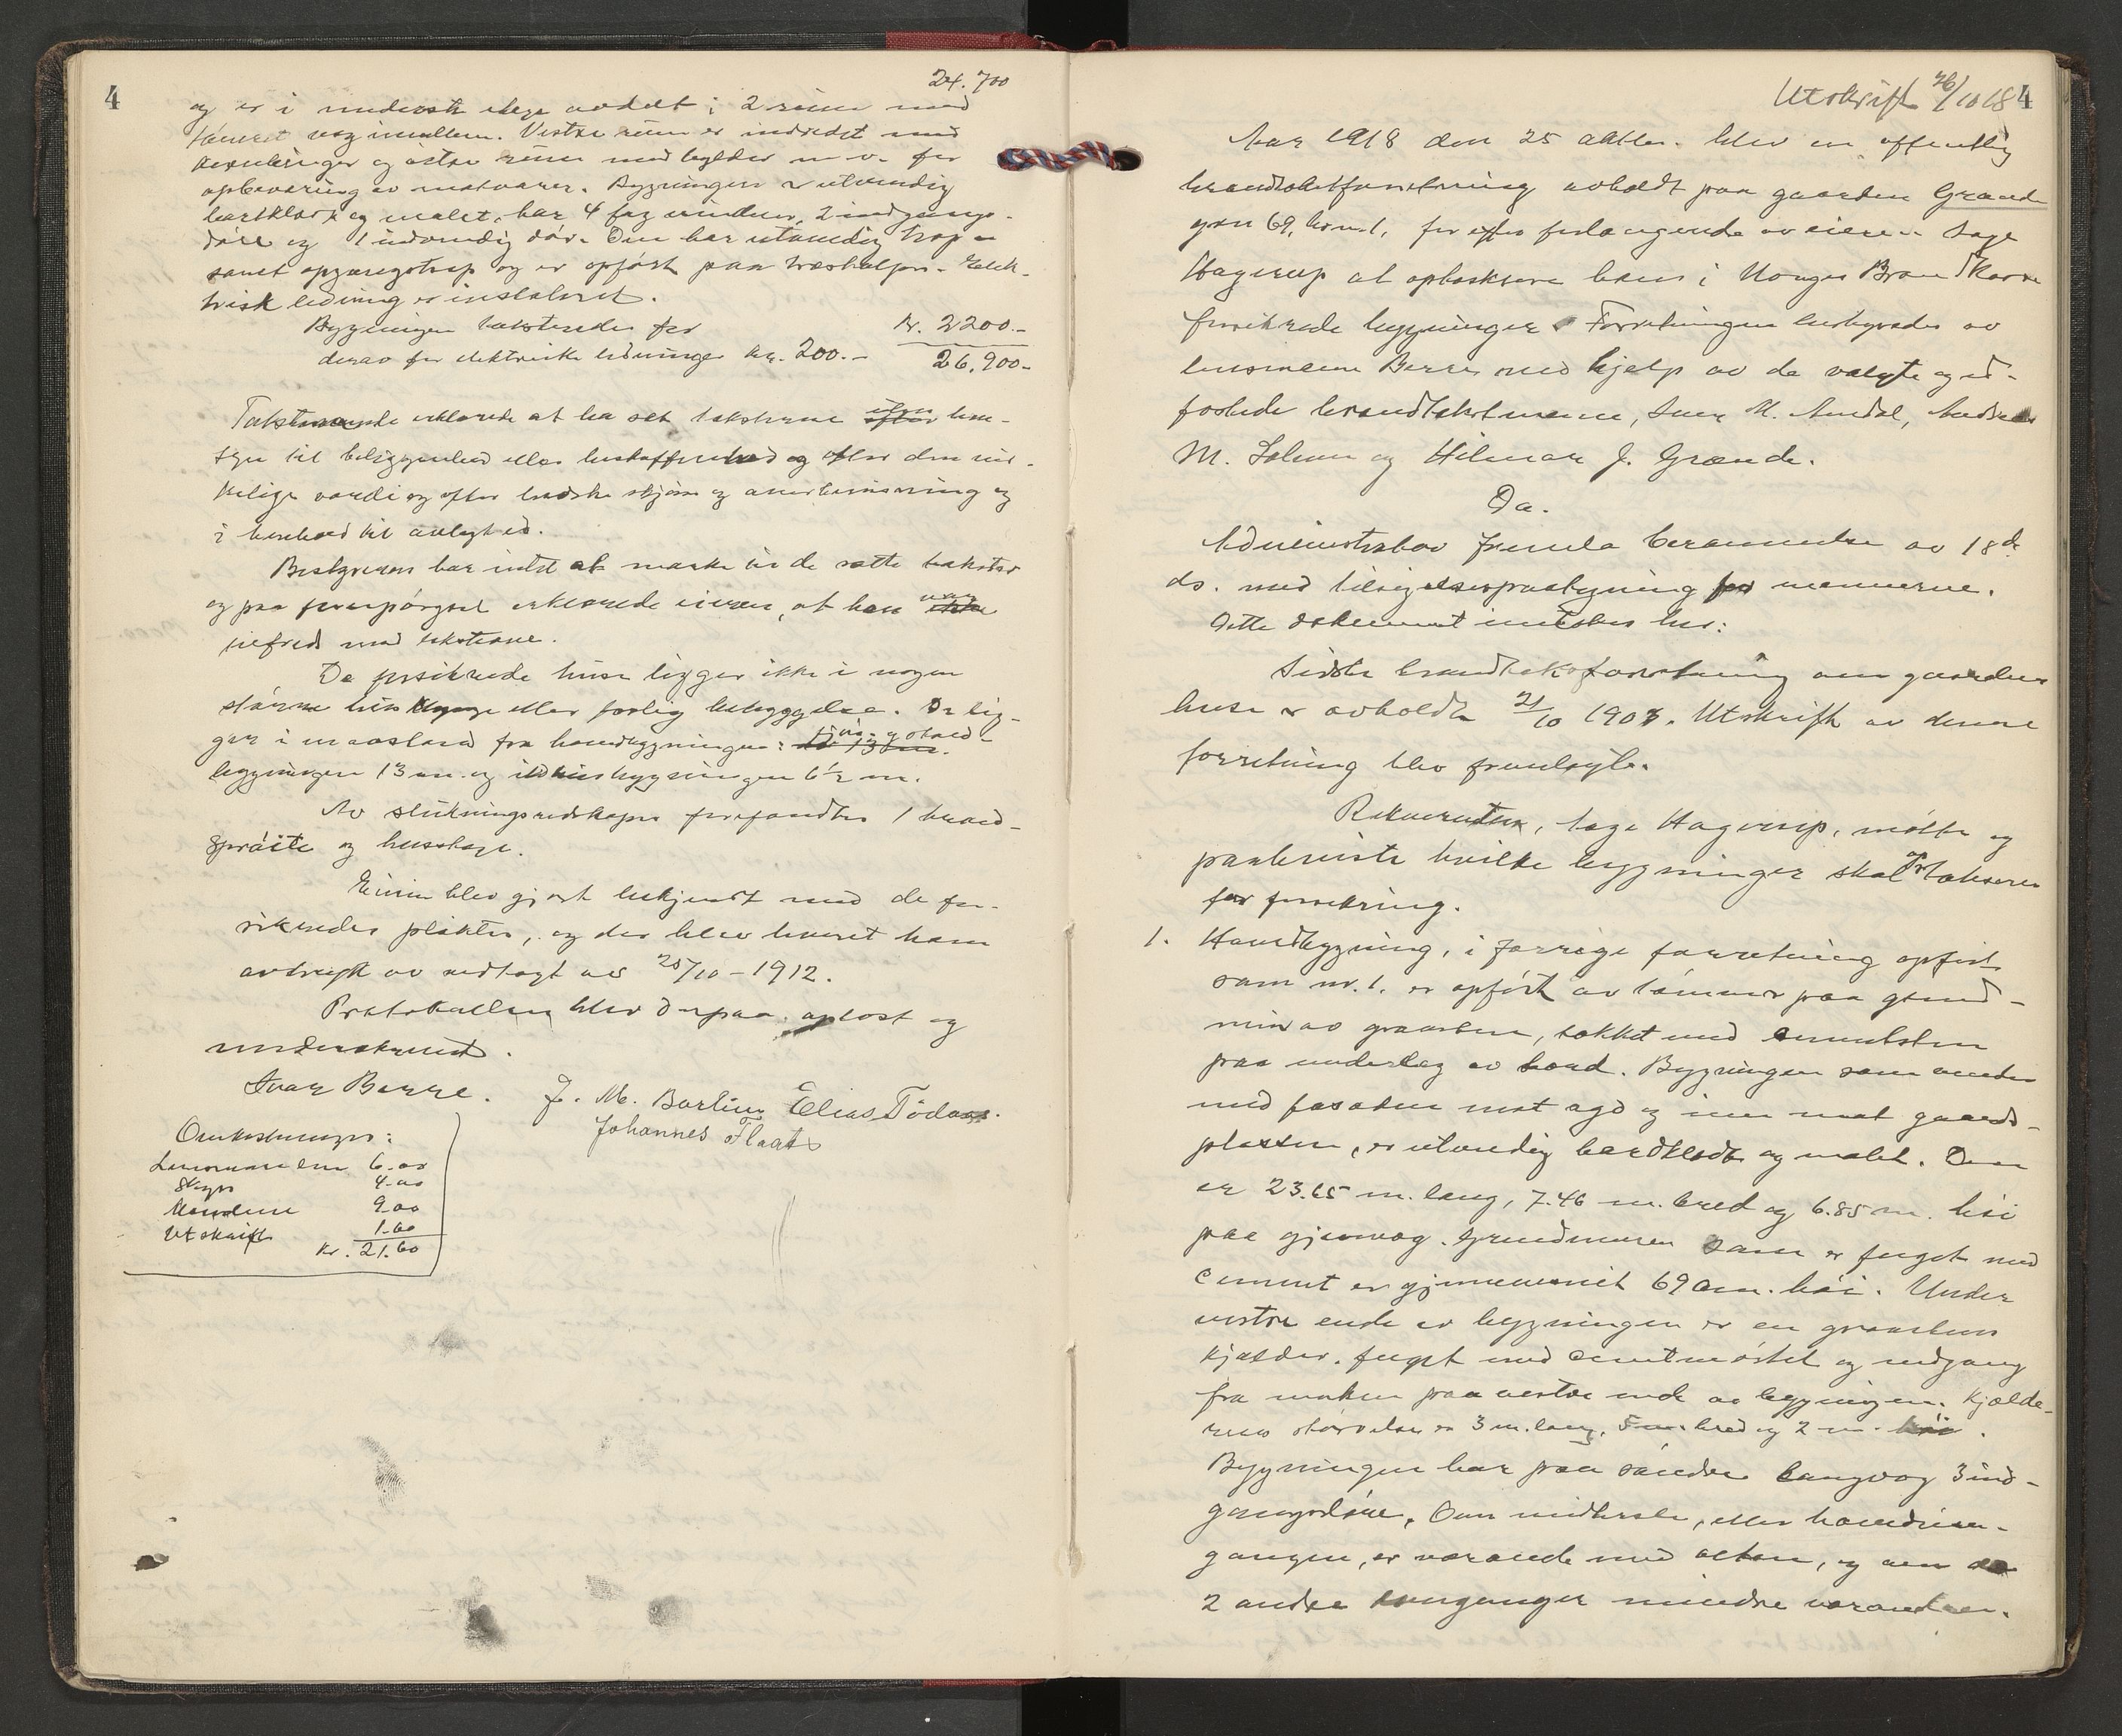 4
24.700
og er i underste etage avdelt i 2 rum med
tømret væg imellem. Vestre rum er indredet med
og østre rum med hylder m. v. for
opbevaring av matvarer. Bygningen er utvendig
bordklædt og malet, har 4 fag vinduer, 2 indgangs-
døre og 1 indvendig dør. Den har utvendig trap
samt opgangstrap og er opført paa træstolper. Elek-
trisk ledning er installeret.
Bygningen taksteredes for kr. 2200.-
derav for elektriske ledninger kr. 200.- 26.900-
Takstmændene erklærede at ha sat taksterne uten hen-
syn til beliggenhed eller beskaffenhed og efter den vir-
kelige værdi og efter bedste skjøn og overbevisning og
i henhold til avlagt ed.
Bestyreren har intet at merke til de satte takster
og paa forespørgsel erklærede eieren, at han var
tilfreds med taksterne.
De forsikrede huse ligger ikke i nogen
større husklynge eller farlig bebyggelse. De lig-
ger i en avstand fra hovedbygningen: fjøs- og stald-
bygningen 13 m. og ildhusbygningen 6½ m.
Av slukningsredskaper forefandtes 1 brand-
sprøite og husstige.
Eieren blev gjort bekjendt med de for-
sikredes plikter, og der blev leveret ham
avtryk av vedtægt av 25/10 - 1912.
Protokollen blev derpaa oplæst og
underskrevet.
Ivar Berre. J. M. Barlien Elias Tødaas.
Johannes Flaat
Omkostninger:
Lensmanden 6.00
Skyss 4.00
Mændene 9.00
Utskrift 1.60
Kr. 21.60
Utskrift 26/10 18 4
Aar 1918 den 25 oktbr. blev en offentlig
brandtakstforretning avholdt paa gaarden Grande
gno 69, brn. 1, for efter forlangende av eieren Sage
Hagerup at optaksere hans i Norges Brandkasse
forsikrede bygninger. Forretningen bestyredes av
lensmann Berre med hjelp av de valgte og ed-
fæstede brandtakstmænd, Sverre M. Amdal, Andreas
M. Solum og Hilmar J. Grande.
Da.
Administrator fremla berammelse av 18 de
ds. med tilsigelsespaategning for mænnerne.
Dette dokument indtages her:
Sidste brandtakstforretning over gaardens
huse er avholdt 21/10 1907. Utskrift av denne
forretning blev fremlagt.
Rekvirenten, Sage Hagerup, møtte og
paaviste hvilke bygninger skal optakseres
for forsikring.
1. Hovedbygning, i forrige forretning opført
som nr. 1. er opført av tømmer paa grund-
mur av graasten, tækket med cementsten
paa underlag av bord. Bygningen som vender
med fasaden mot syd og inn mot gaards-
plassen, er utvendig bordklædt og malet. Den
er 23.65 m. lang, 7.46 m. bred og 6.85 m. høi
paa gjenvæg. Grundmuren som er fuget med
cement er gjennemsnit 69 cm. høi. Under
vestre ende av bygningen er en graastens
kjælder, fuget med cementmørtel og nedgang
fra marken paa vestre ende av bygningen. Kjælde-
rens størrelse er 3 m. lang, 5 m. bred og 2 m. høi.
Bygningen har paa søndre langvæg 3 ind-
gangsdøre. Den midterste, eller hovedind-
gangen, er veranda med altan, og over de
2 andre innganger mindre verandaer.